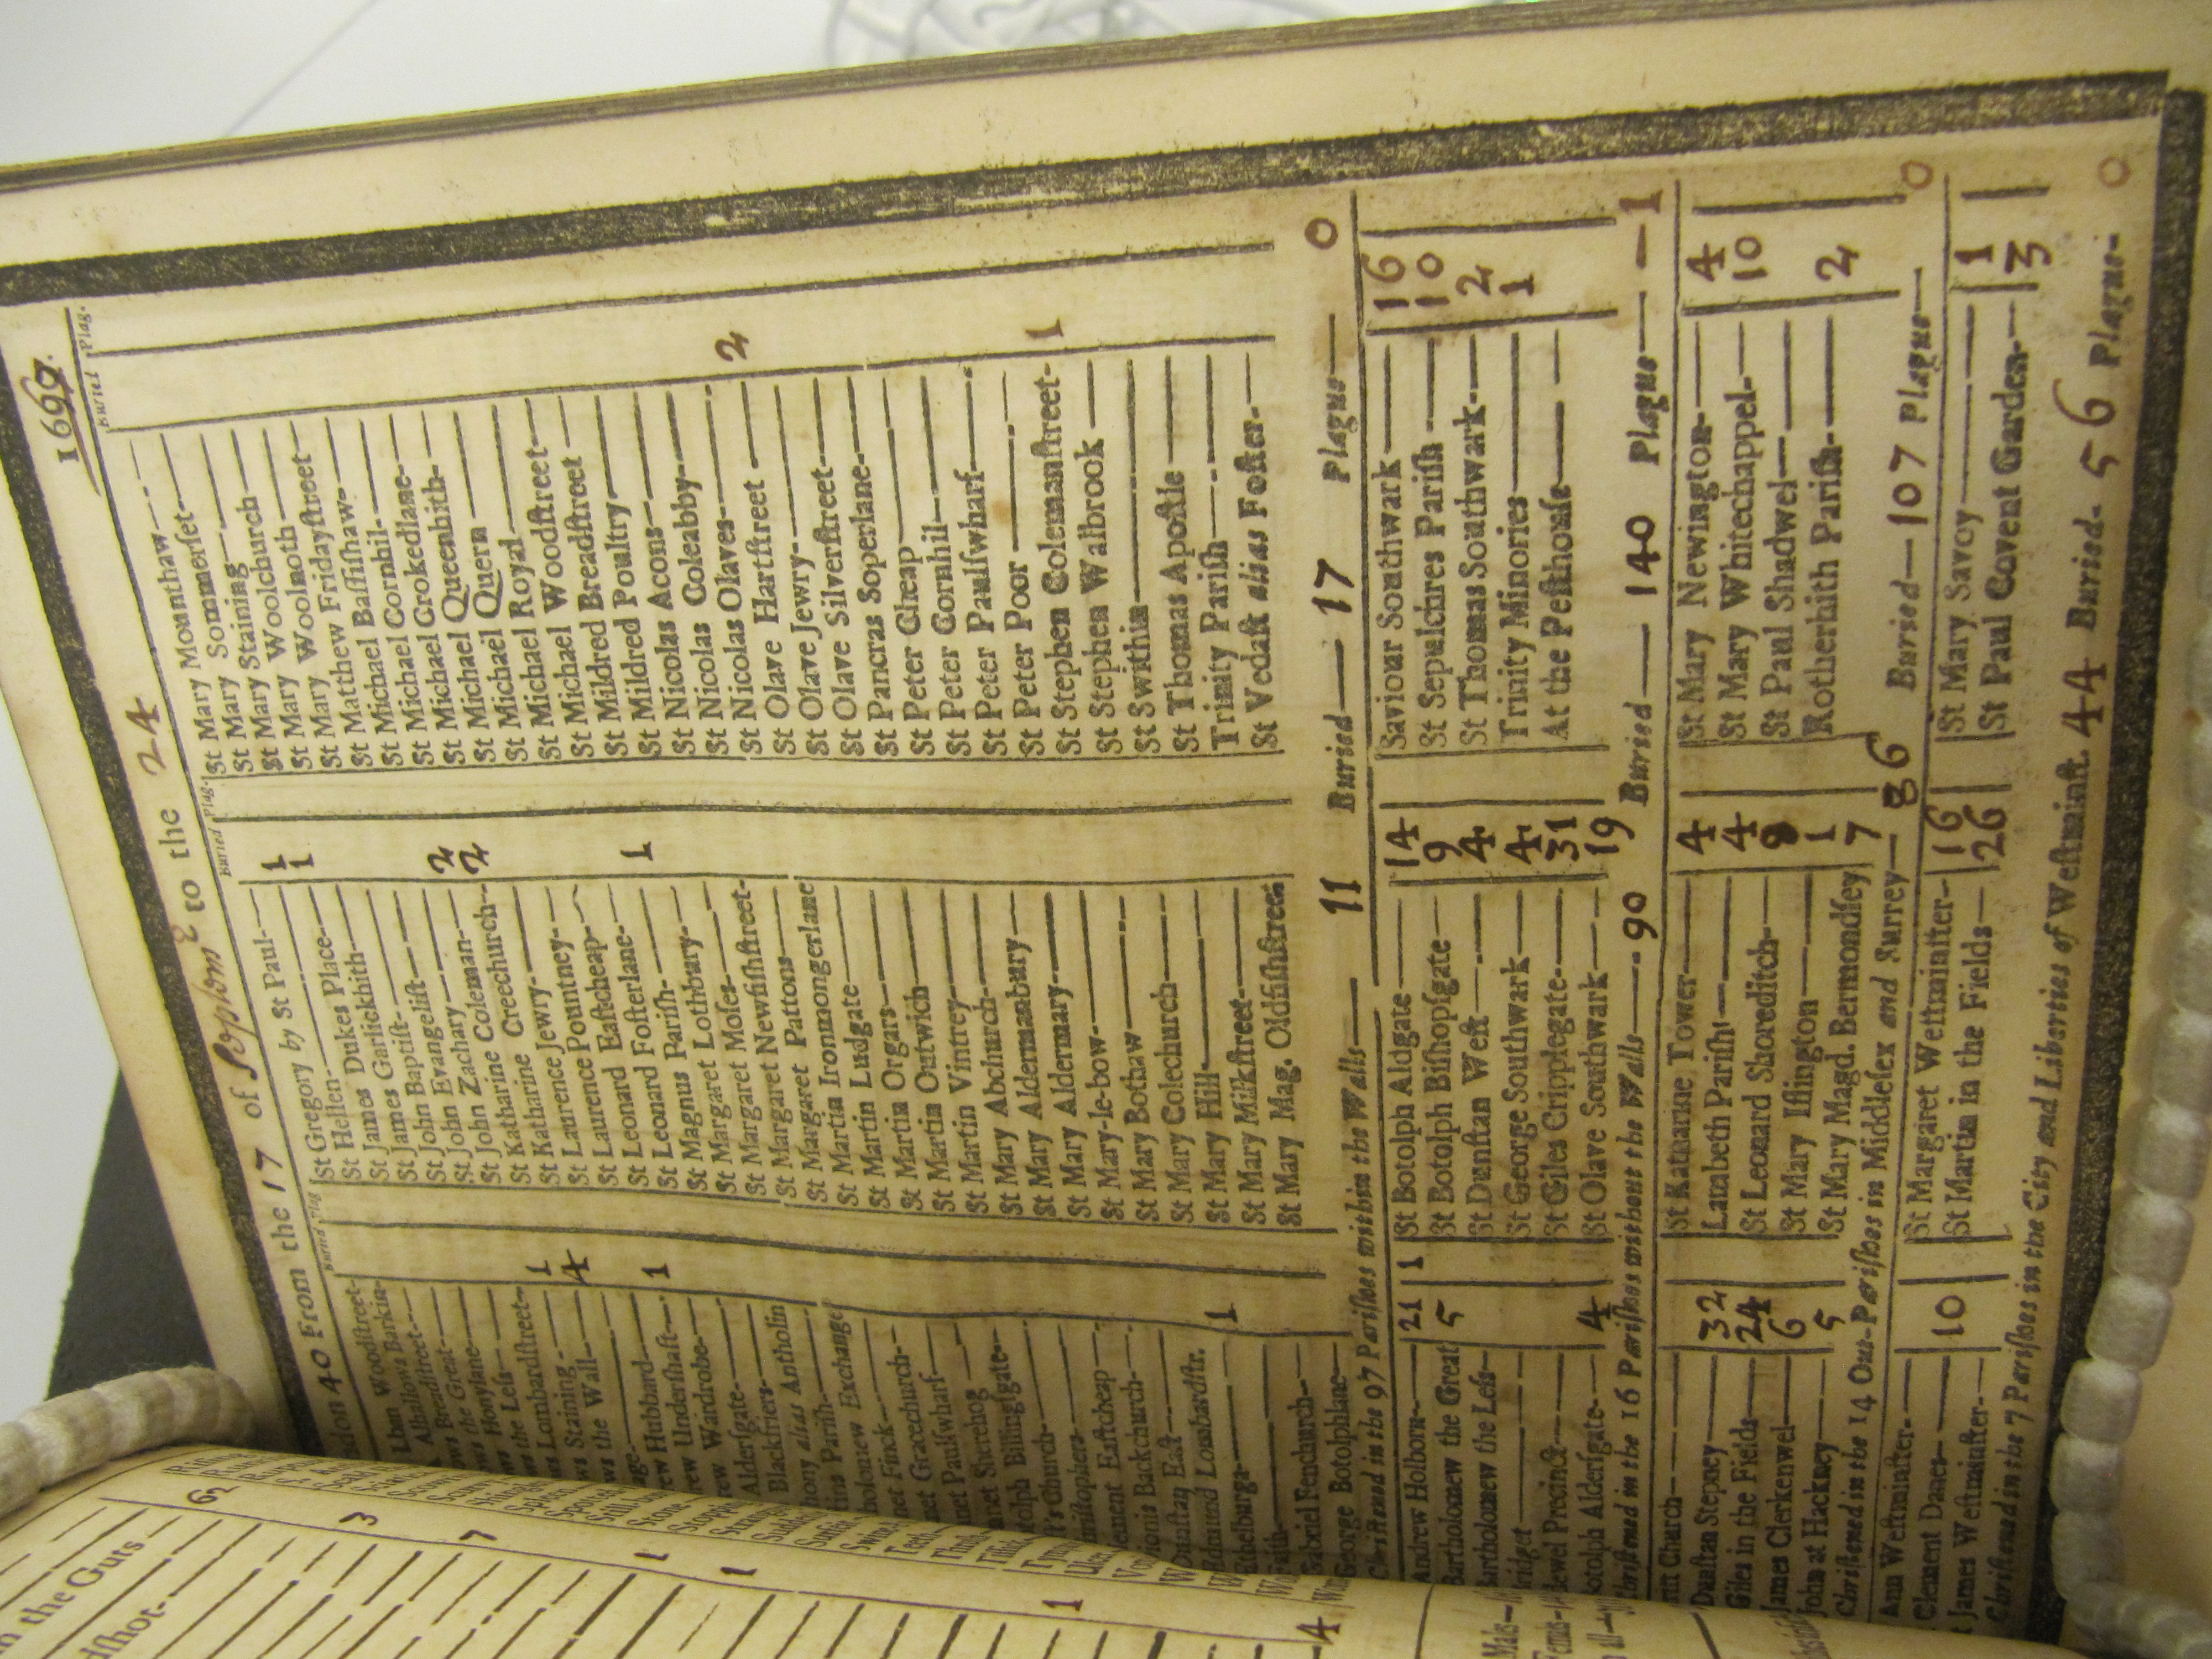 London 40 From the 17 of Septem to the 24 1667.
Buried Plag
Lban Woodstreet
Alhallows Barkin
ws Breadstreet
ws the Great
ws Honylane
ws the Less
ws Lombardstreet 1
ws Staining 4
ws the Wall
rage
ew Hubbard 1
rew Undershaft
rew Wardrobe
Aldersgate
Blackfriers
hony alias Antholin
tins Parish
tholomew Exchange
net Finck
net Gracechurch
net Paulswharf
net Sherehog
tolph Billingsgate
t's Church
hristophers
lement Eastcheap
Dionis Backchurch
Dunstan East
Edmund Lombardstr.
Ethelburga 1
Faith
Gabriel Fenchurch
George Botolphlane
Buried Plag.
St Gregory by St Paul 1
St Hellen 1
St James Dukes Place
St James Garlickhith
St John Baptist
St John Evangelist 2
St John Zachary 2
St Katharine Coleman
St Katharine Creechurch
St Katharine Jewry
St Laurence Pountney
St Laurence Jewry
St Leonard Eastcheap 1
St Leonard Fosterlane
St Magnus Parish
St Margaret Lothbury
St Margaret Moses
St Margaret Newfishstreet
St Margaret Pattons
St Martin Ironmongerlane
St Martin Ludgate
St Martin Orgars
St Martin Outwich
St Martin Vintrey
St Mary Abchurch
St Mary Aldermanbury
St Mary Aldermary
St Mary-le-bow
St Mary Bothaw
St Mary Colechurch
St Mary Hill
St Mary Milkstreet
St Mary Mag. Oldfishstreet
Buried Plag.
St Mary Mounthaw
St Mary Sommerset
St Mary Staining
St Mary Woolchurch
St Mary Woolnoth
St Mary Fridaystreet
St Matthew Bassishaw
St Michael Cornhil
St Michael Crokedlane
St Michael Queenhith
St Michael Quern
St Michael Royal
St Michael Woodstreet
St Mildred Breadstreet
St Mildred Poultry
St Nicolas Acons
St Nicolas Coleabby
St Nicolas Olaves
St Olave Hartstreet 2
St Olave Jewry
St Olave Silverstreet
St Pancras Soperlane
St Peter Cheap
St Peter Cornhil
St Peter Paulswharf
St Peter Poor
St Stephen Colemanstreet 1
St Stephen Walbrook
St Swithin
St Thomas Apostle
Trinity Parish
St Vedast alias Foster
Christned in the 97 Parishes within the Walls 11 Buried 17 Plague 0
Andrew Holborn 21 1
Bartholomew the Great 5
Bartholomew the Less
ridget
dewel Precinct
Botolph Aldersgate 4
St Botolph Aldgate 14
St Botolph Bishopsgate 9
St Dunstan West 4
St George Southwark 4
St Giles Cripplegate 31
St Olave Southwark 19
Saviour Southwark 16
St Sepulchres Parish 10
St Thomas Southwark 2
Trinity Minories 1
At the Pesthouse
Christned in the 16 Parishes without the Walls 90 Buried 140 Plague 1
rist Church
Dunstan Stepney 32
Giles in the Fields 24
James Clerkenwel 6
John at Hackney 5
St Katharine Tower 4
Lambeth Parish 4
St Leonard Shoreditch 8
St Mary Islington 1
St Mary Magd. Bermondsey 7
St Mary Newington 4
St Mary Whitechappel 10
St Paul Shadwel
Rotherhith Parish 2
Christned in the 14 Out-Parishes in Middlesex and Surrey 86 Buried 107 Plague 0
Ann Westminster
Clement Danes 10
James Westminster
St Margaret Westminster 16
St Martin in the Fields 26
St Mary Savoy 1
St Paul Covent Garden 3
Christned in the 7 Parishes in the City and Liberties of Westminst. 44 Buried 56 Plague 0
in the Guts
dshot
62
3
7
1
1
1
4